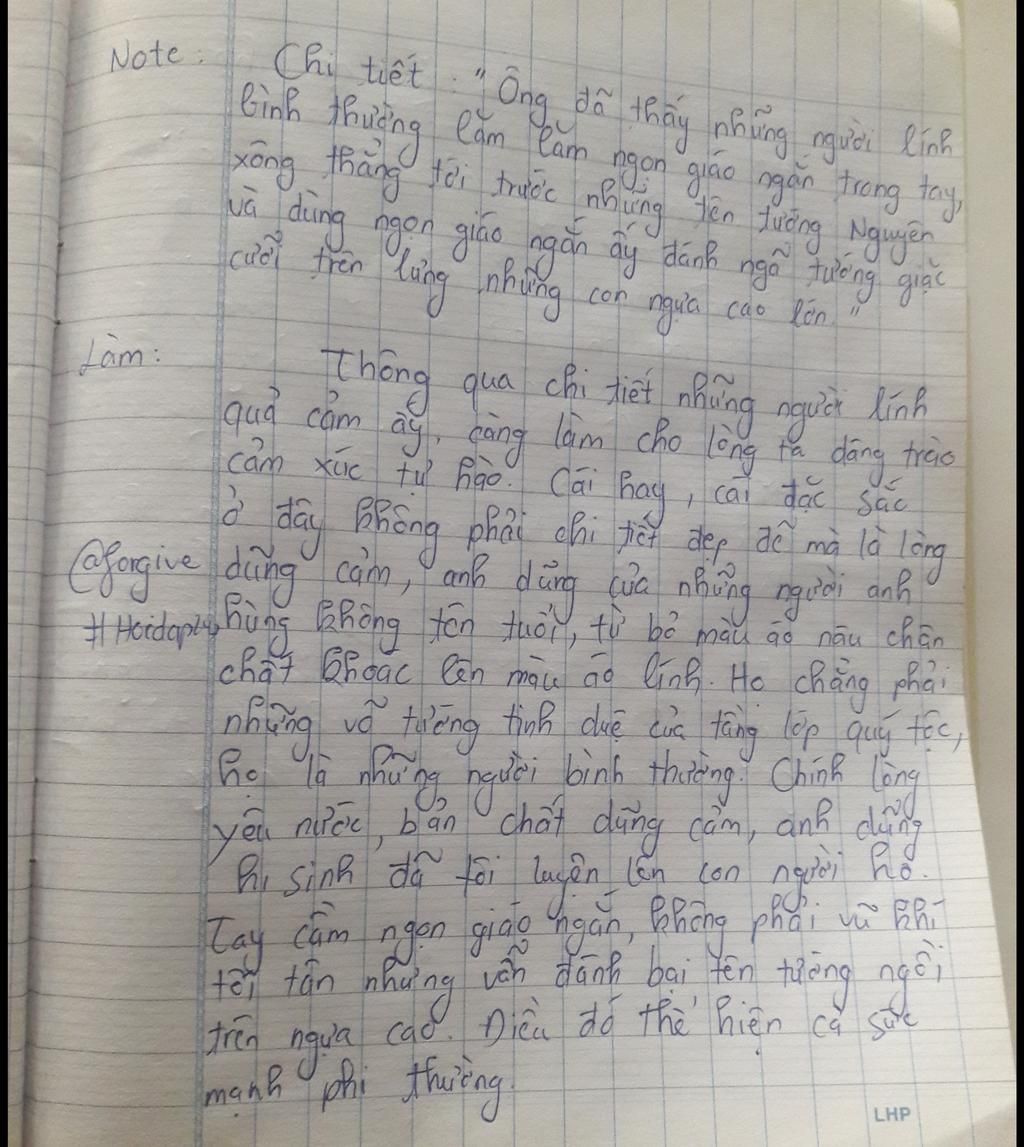 Note: Chi tiết: "Ông đã thấy những người lính
bình thường lăm lăm ngọn giáo ngắn trong tay,
xông thẳng tới trước những tên tướng Nguyên
và dùng ngọn giáo ngắn ấy đánh ngã tướng giặc
cưỡi trên lưng những con ngựa cao lớn."
Làm: Thông qua chi tiết những người lính
quả cảm ấy, càng làm cho lòng ta dâng trào
cảm xúc tự hào. Cái hay, cái đặc sắc
ở đây không phải chi tiết đẹp đẽ mà là lòng
@forgive dũng cảm, anh dũng của những người anh
#Hoidap247 hùng không tên tuổi, từ bỏ màu áo nâu chân
chất khoác lên màu áo lính. Họ chẳng phải
những võ tướng tinh duệ của tầng lớp quý tộc,
họ là những người bình thường. Chính lòng
yêu nước, bản chất dũng cảm, anh dũng
hi sinh đã tôi luyện lên con người họ.
Tay cầm ngọn giáo ngắn, không phải vũ khí
tối tân nhưng vẫn đánh bại tên tướng ngồi
trên ngựa cao. Điều đó thể hiện cả sức
mạnh phi thường.
LHP